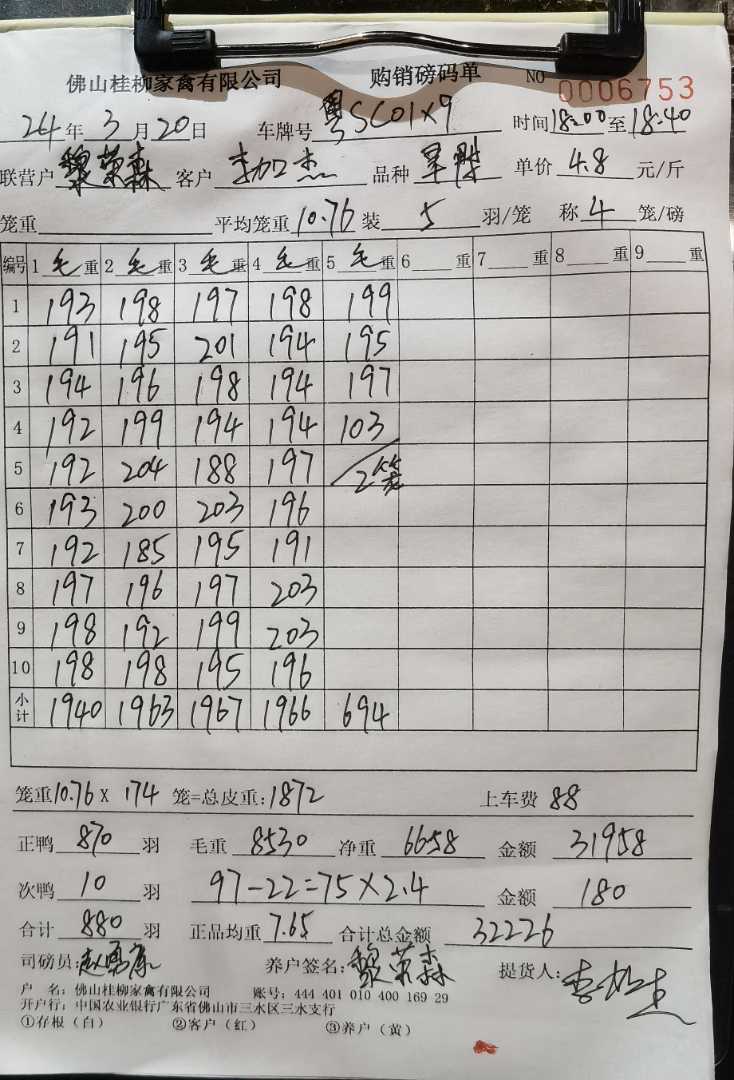 佛山桂柳家禽有限公司 购销磅码单 NO 0006753
24年3月20日 车牌号 粤SC01X9 时间18:00至18:40
联营户 黎荣森 客户 李加杰 品种 单价 4.8 元/斤
笼重 平均笼重 10.76 装 5 羽/笼 称 4 笼/磅
编号 1 毛 重 2 毛 重 3 毛 重 4 毛 重 5 毛 重 6 重 7 重 8 重 9 重
1 193 198 197 198 199
2 191 195 201 194 195
3 194 196 198 194 197
4 192 199 194 194 103
5 192 204 188 197 2笼
6 193 200 203 196
7 192 185 195 191
8 197 196 197 203
9 198 192 199 203
10 198 198 195 196
小计 1940 1963 1967 1966 694
笼重10.76 X 174 笼=总皮重:1872 上车费 88
正鸭 870 羽 毛重 8530 净重 6658 金额 31958
次鸭 10 羽 97-22=75×2.4 金额 180
合计 880 羽 正品均重 7.65 合计总金额 32226
司磅员: 养户签名:黎荣森 提货人:李加杰
户 名:佛山桂柳家禽有限公司 账号:444 401 010 400 169 29
开户行:中国农业银行广东省佛山市三水区三水支行
①存根(白) ②客户(红) ③养户(黄)